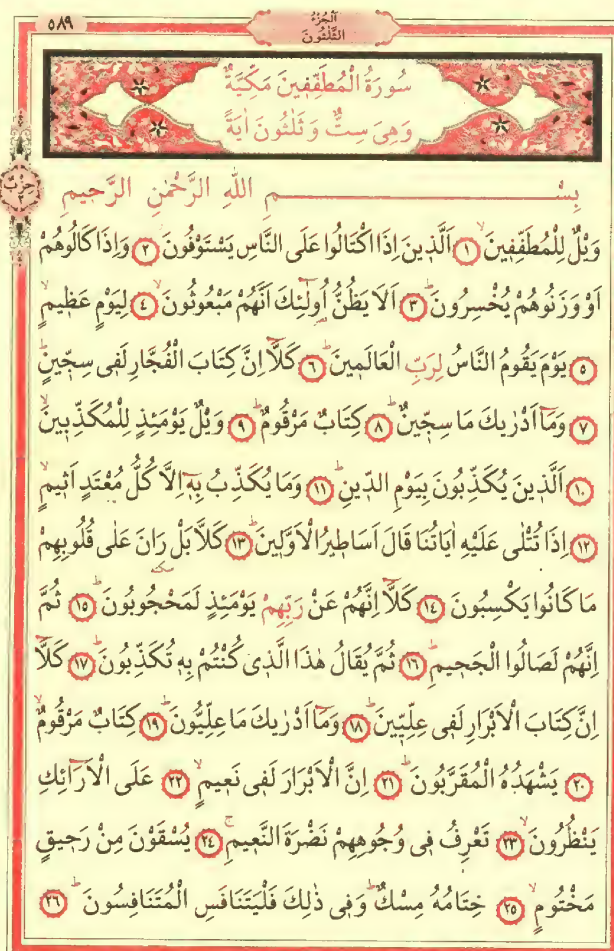 ٥٨٩
اَلْجُزْءُ
الثَّلٰثُونَ
سُورَةُ الْمُطَفِّفِينَ مَكِّيَّةٌ
وَهِىَ سِتٌّ وَ ثَلٰثُونَ اٰيَةً
حِزْبٌ
٢
بِسْمِ اللهِ الرَّحْمٰنِ الرَّحِيمِ
وَيْلٌ لِلْمُطَفِّفِينَۙ ١ اَلَّذِينَ اِذَا اكْتَالُوا عَلَى النَّاسِ يَسْتَوْفُونَۘ ٢ وَاِذَا كَالُوهُمْ
اَوْ وَزَنُوهُمْ يُخْسِرُونَۜ ٣ اَلَا يَظُنُّ اُولٰٓئِكَ اَنَّهُمْ مَبْعُوثُونَۙ ٤ لِيَوْمٍ عَظِيمٍۙ
٥ يَوْمَ يَقُومُ النَّاسُ لِرَبِّ الْعَالَمِينَۜ ٦ كَلَّٓا اِنَّ كِتَابَ الْفُجَّارِ لَفِى سِجِّينٍۜ
٧ وَمَٓا اَدْرٰيكَ مَا سِجِّينٌۜ ٨ كِتَابٌ مَرْقُومٌۜ ٩ وَيْلٌ يَوْمَئِذٍ لِلْمُكَذِّبِينَۙ
١٠ اَلَّذِينَ يُكَذِّبُونَ بِيَوْمِ الدِّينِۜ ١١ وَمَا يُكَذِّبُ بِهٓ اِلَّا كُلُّ مُعْتَدٍ اَثِيمٍۙ
١٢ اِذَا تُتْلٰى عَلَيْهِ اٰيَاتُنَا قَالَ اَسَاطِيرُ الْاَوَّلِينَۜ ١٣ كَلَّا بَلْ رَانَ عَلٰى قُلُوبِهِمْ
مَا كَانُوا يَكْسِبُونَ ١٤ كَلَّٓا اِنَّهُمْ عَنْ رَبِّهِمْ يَوْمَئِذٍ لَمَحْجُوبُونَۜ ١٥ ثُمَّ
اِنَّهُمْ لَصَالُوا الْجَحِيمِۜ ١٦ ثُمَّ يُقَالُ هٰذَا الَّذِى كُنْتُمْ بِهِ تُكَذِّبُونَۜ ١٧ كَلَّٓا
اِنَّ كِتَابَ الْاَبْرَارِ لَفِى عِلِّيِّينَۜ ١٨ وَمَٓا اَدْرٰيكَ مَا عِلِّيُّونَۜ ١٩ كِتَابٌ مَرْقُومٌۙ
٢٠ يَشْهَدُهُ الْمُقَرَّبُونَۜ ٢١ اِنَّ الْاَبْرَارَ لَفِى نَعِيمٍۙ ٢٢ عَلَى الْاَرَٓائِكِ
يَنْظُرُونَۙ ٢٣ تَعْرِفُ فِى وُجُوهِهِمْ نَضْرَةَ النَّعِيمِۚ ٢٤ يُسْقَوْنَ مِنْ رَحِيقٍ
مَخْتُومٍۙ ٢٥ خِتَامُهُ مِسْكٌۜ وَفِى ذٰلِكَ فَلْيَتَنَافَسِ الْمُتَنَافِسُونَۜ ٢٦